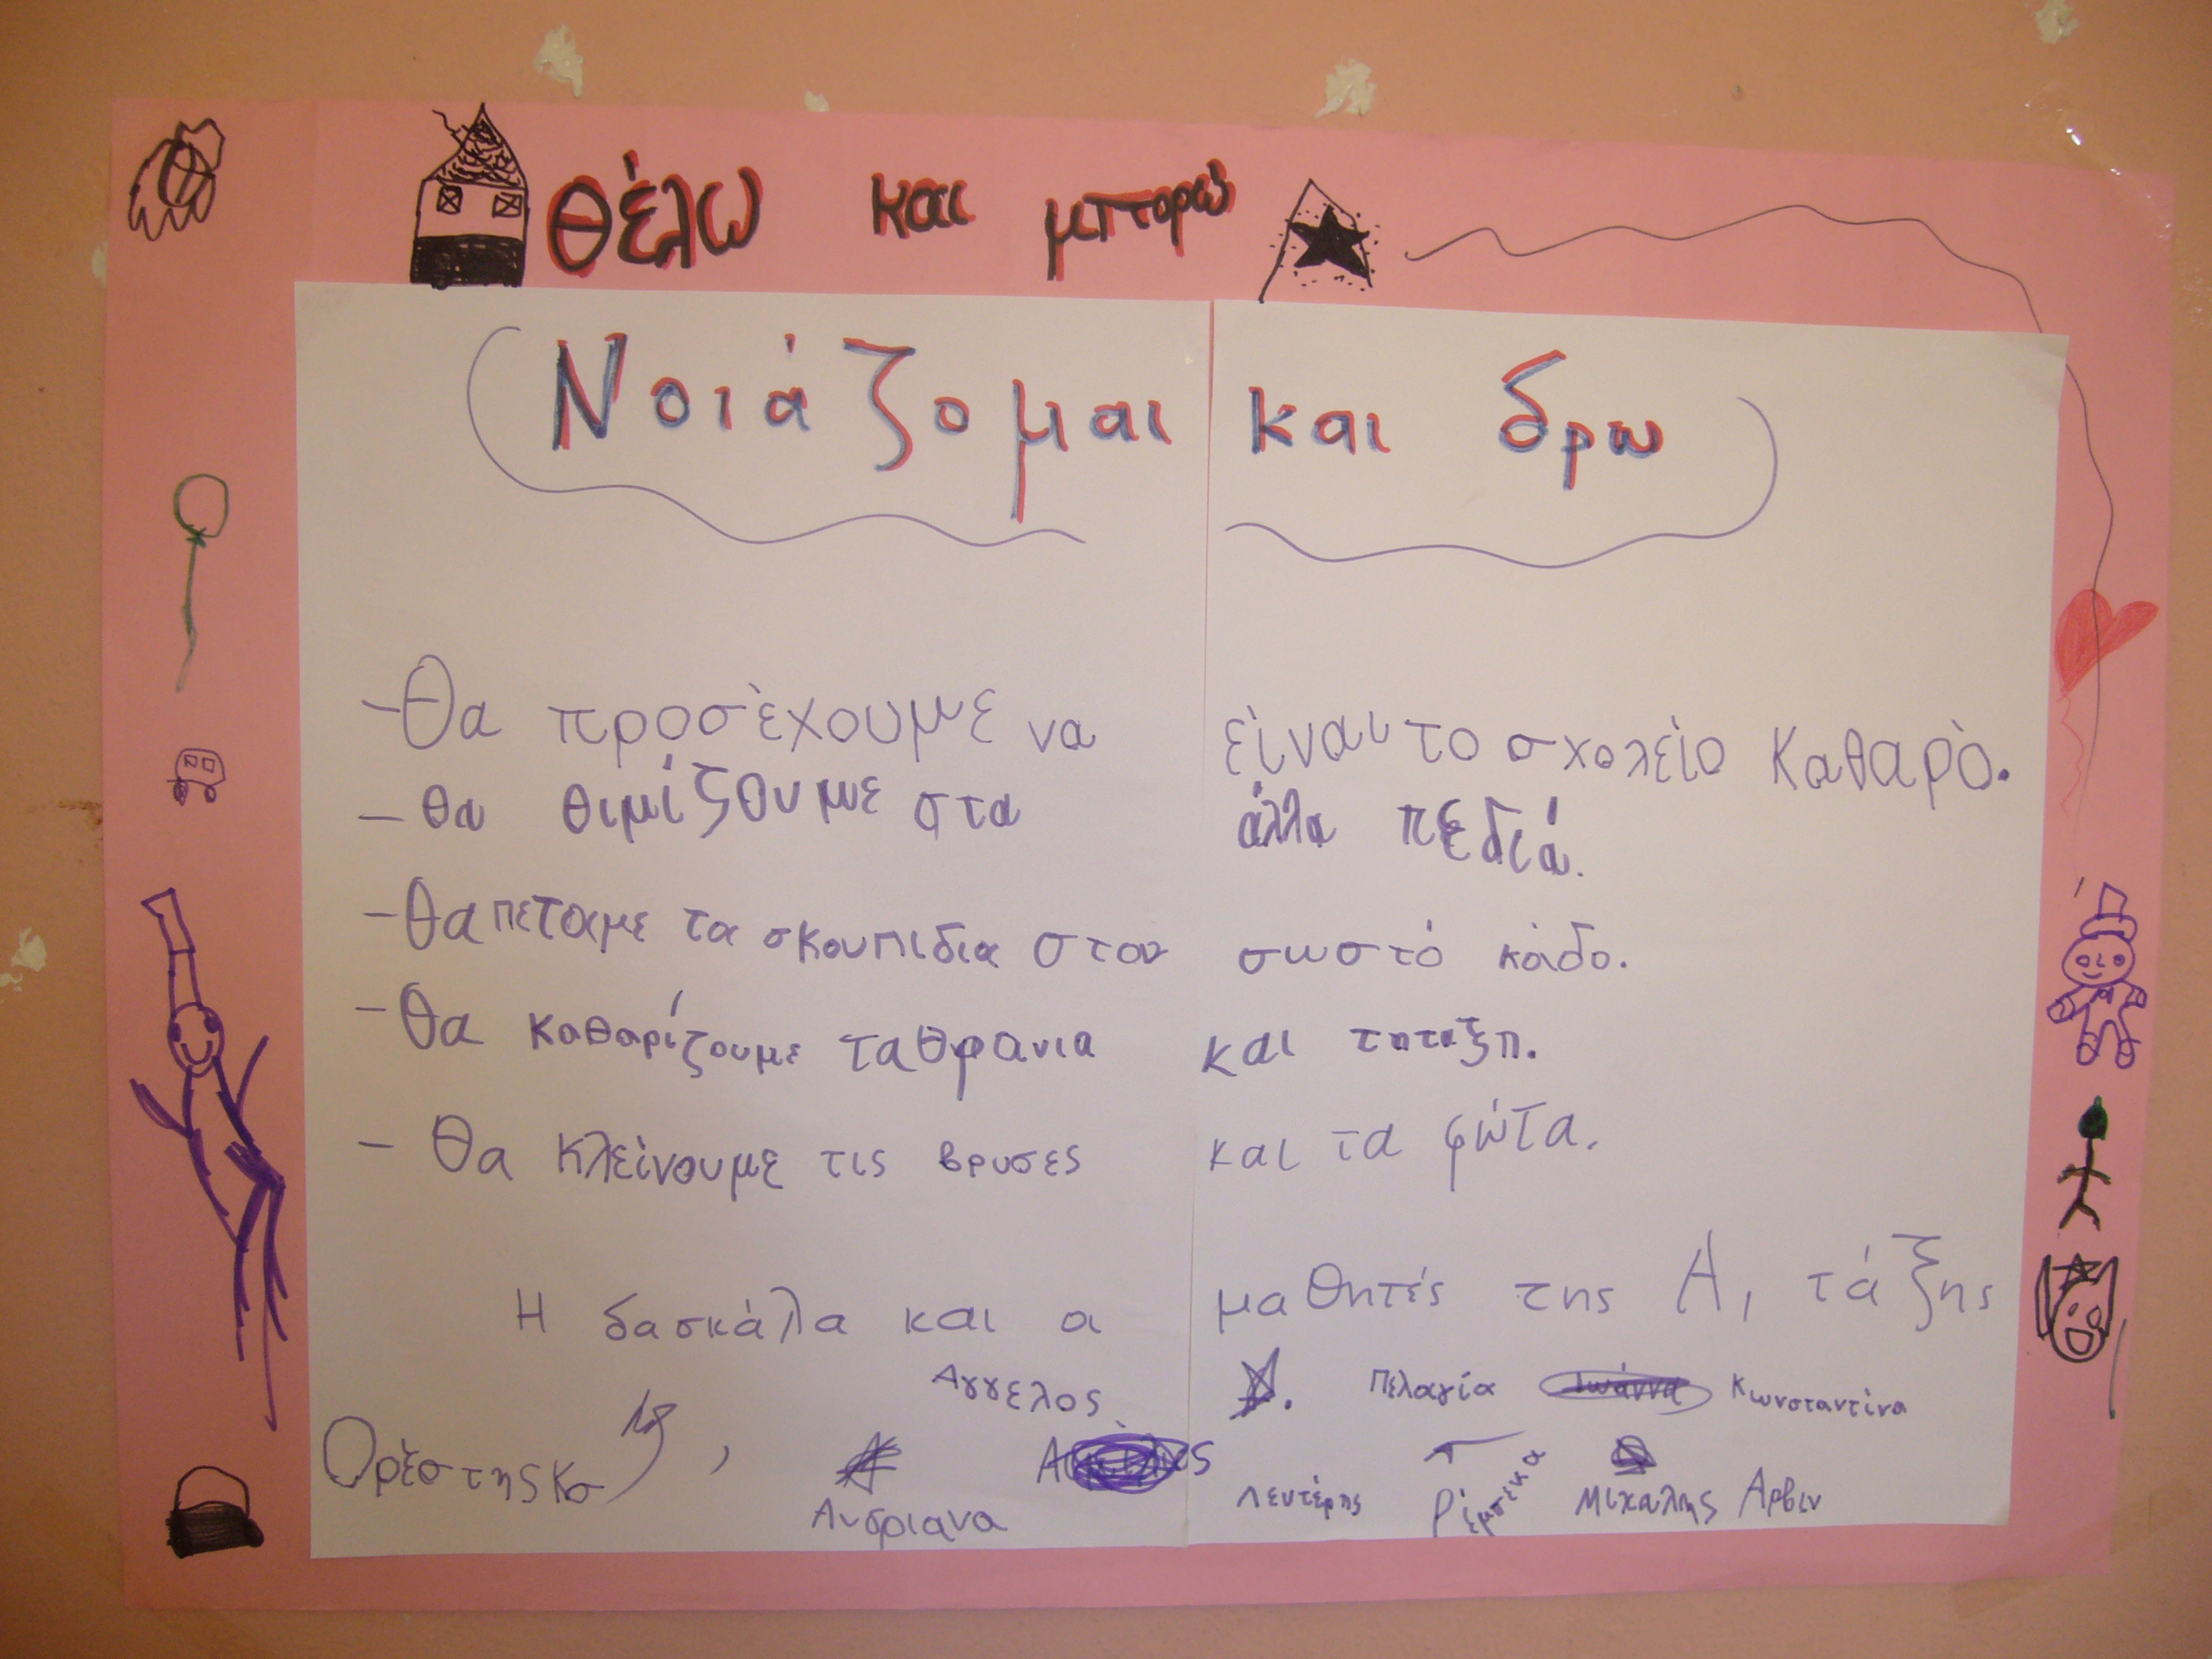 θέλω και μπορώ
Νοιάζομαι και δρω
-Θα προσέχουμε να είναι το σχολείο καθαρό.
- θα θιμίζουμε στα άλλα πεδιά.
-Θα πεταμε τα σκουπιδια στον σωστό κάδο.
-Θα καθαρίζουμε τα θρανια και τη ταξη.
- Θα κλείνουμε τις βρυσες και τα φώτα.
Η δασκάλα και οι μαθητές της Α, τάξης
Αγγελος Πελαγία Ιωάννα Κωνσταντίνα
Ορέστης Κσ , Λευτέρης Ρέμπεκα Μιχαλης Αρβιν
Ανδριανα